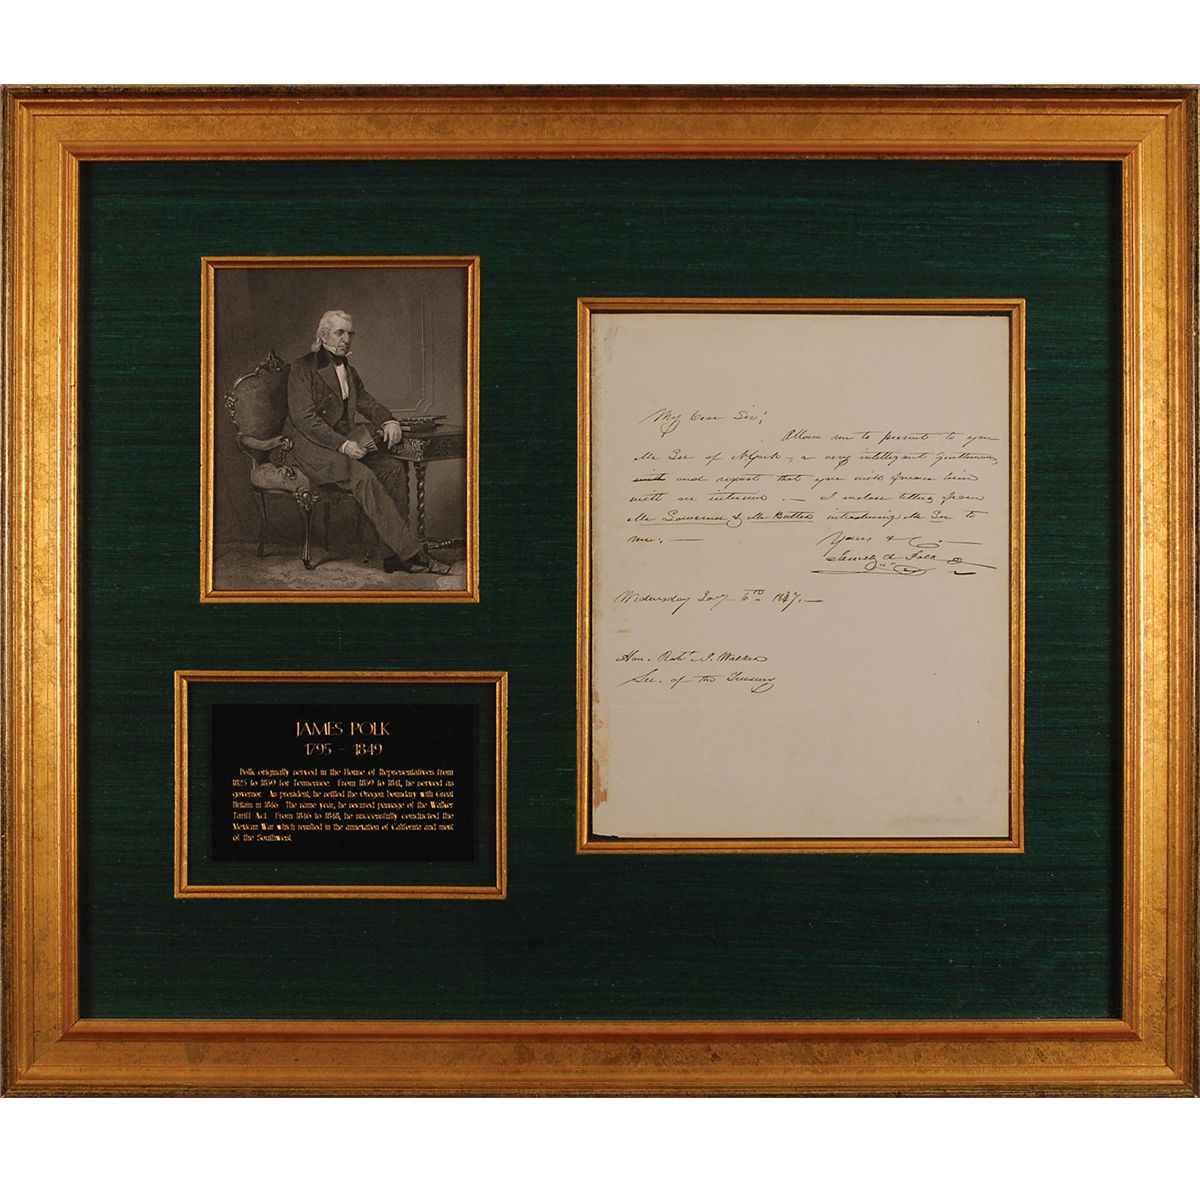 JAMES POLK
1795 – 1849
Polk originally served in the House of Representatives from
1825 to 1839 for Tennessee. From 1839 to 1841, he served as
governor. As president, he settled the Oregon boundary with Great
Britain in 1846. The same year, he secured passage of the Walker
Tariff Act. From 1846 to 1848, he successfully conducted the
Mexican War which resulted in the annexation of California and most
of the Southwest.
My Dear Sir;
Allow me to present to you
Mr of N. York, a very intelligent gentleman,
and request that you will favour him
with an interview. — I enclose letters from
Mr Governeur & Mr Butler introducing Mr to
me. —
Yours &c.
James K. Polk
Wednesday Jany 6th 1847. —
Hon. Robt J. Walker
Sec. of the Treasury